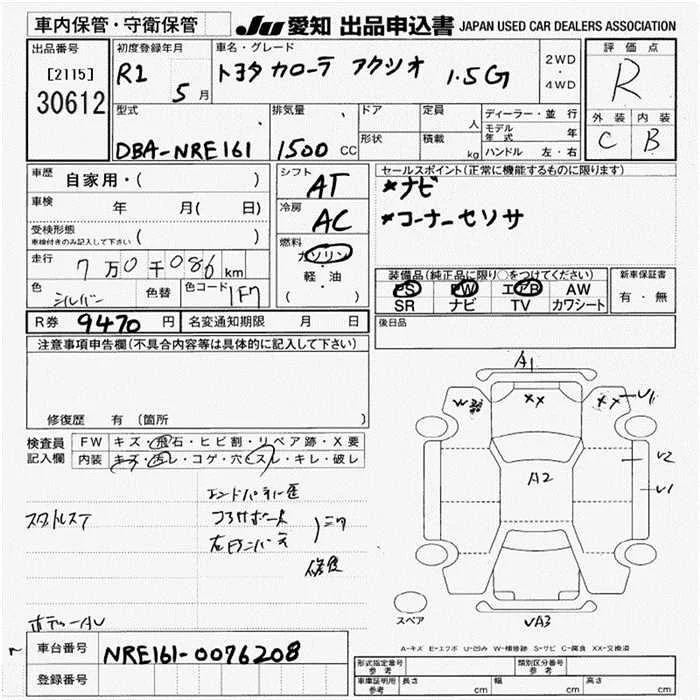 車内保管・守衛保管
JU 愛知 出品申込書 JAPAN USED CAR DEALERS ASSOCIATION
出品番号
[2115]
30612
初度登録年月
R1 5月
車名・グレード
トヨタ カローラ アクシオ 1.5G
2WD
・
4WD
評価点
R
外装 内装
C B
型式
DBA-NRE161
排気量
1500 CC
ドア
形状
定員
人
積載
kg
ディーラー・並行
モデル年式 年
ハンドル 左・右
車歴 自家用・( )
車検 年 月( 日)
受検形態
車検付きのみ記入して下さい ( )
走行 7万0千086 km
色 シルバー 色替 色コード 1F7
シフト AT
冷房 AC
燃料
ガソリン
・
軽・油
( )
セールスポイント(正常に機能するものに限ります)
*ナビ
*コーナーセンサ
装備品(純正品に限り○をつけてください)
PS PW エアB AW
SR ナビ TV カワシート
新車保証書
有・無
R券 9470円 名変通知期限 月 日
後日品
注意事項申告欄(不具合内容等は具体的に記入して下さい)
修復歴 有 (箇所 )
検査員
記入欄
FW キズ・飛石・ヒビ割・リペア跡・X要
内装 キズ・汚レ・コゲ・穴・スレ・キレ・破レ
スタットレス
エンドパネル歪
右
修復
ボデーAU
A1
W
XX
XX
U1
A2
U2
U1
UA3
スペア
A-キズ E-エクボ U-凹み W-補修跡 S-サビ C-腐食 XX-交換済
車台番号 NRE161-0076208
登録番号
形式指定番号
参考
類別区分番号
参考
車庫証明用
参考
長さ cm 幅 cm 高さ cm